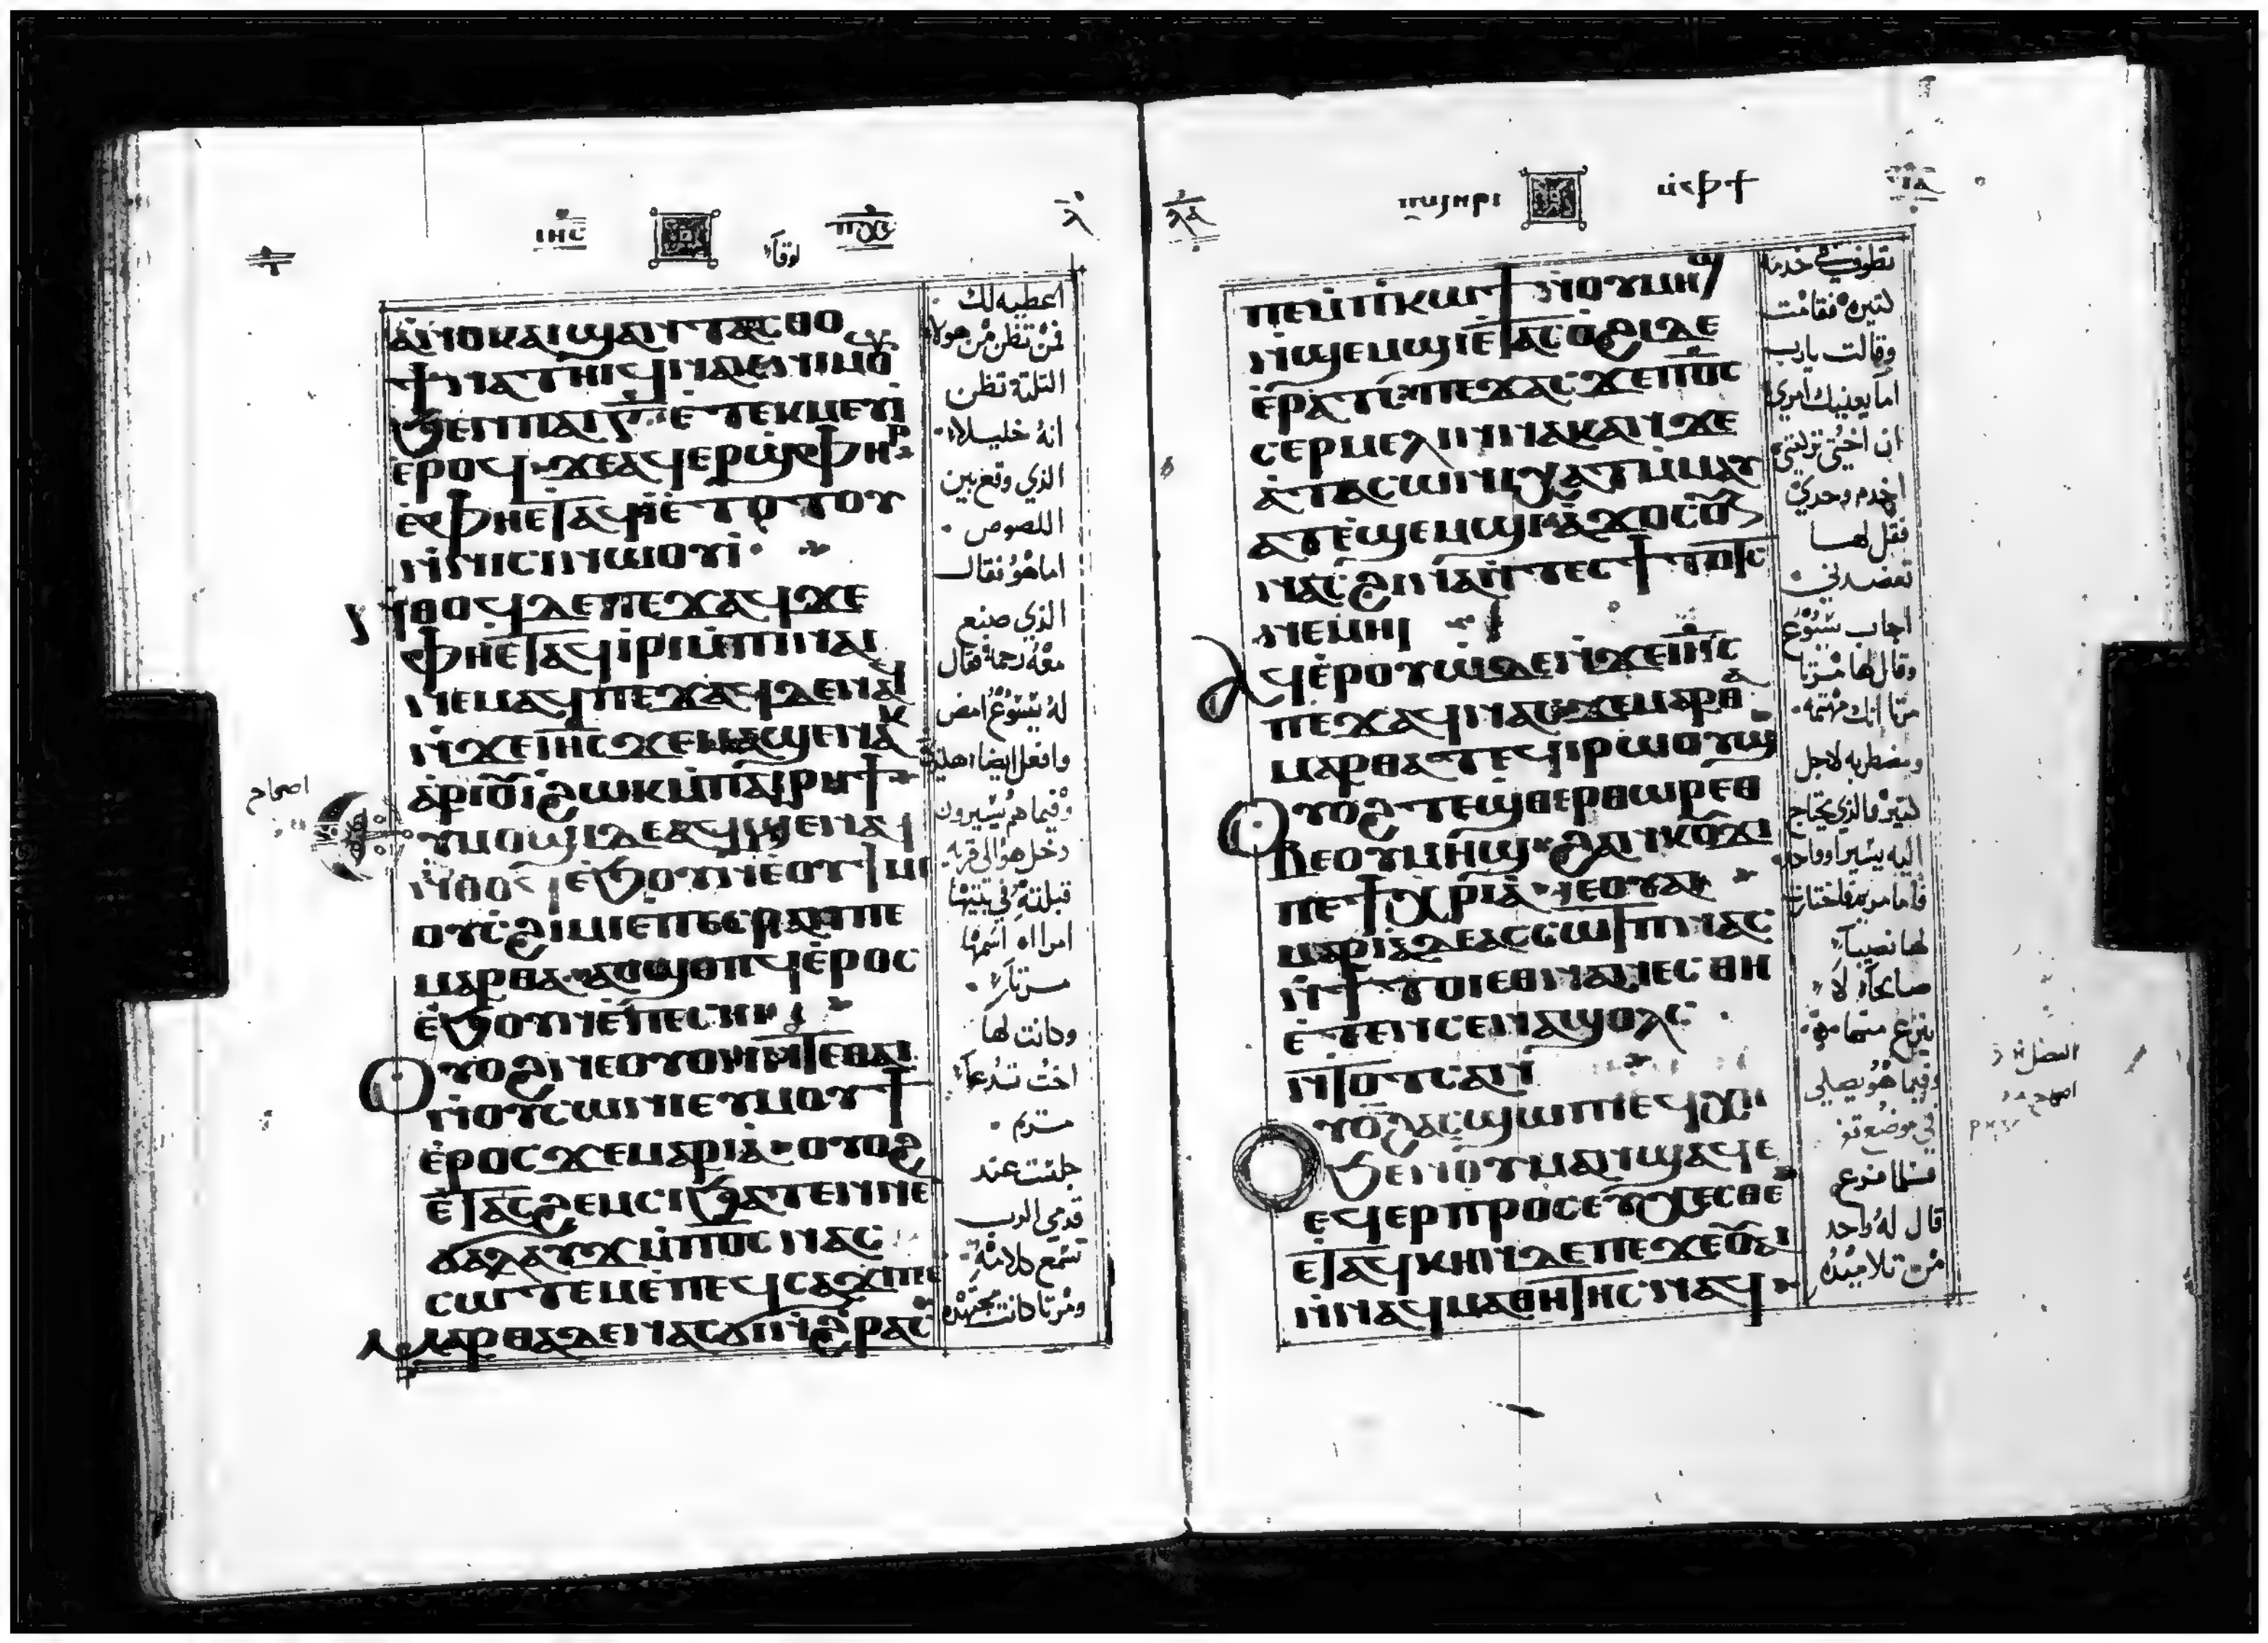 ⲓⲏⲥ ⲡⲭⲥ
ⲗ
ⲁⲛⲟⲕ ⲁⲓϣⲁⲛⲧⲁⲥⲑⲟ
ϯⲛⲁⲧⲏⲓϥ ⲛⲁⲕ ⲛⲓⲙ ⲟⲩⲛ
ϧⲉⲛ ⲡⲁⲓⲅ̅ ⲉⲧⲉⲕⲙⲉⲩⲓ
ⲉⲣⲟϥ ϫⲉ ⲁϥⲉⲣϣⲫⲏⲣ
ⲉⲫⲏⲉⲧⲁϥϩⲉ ⲉⲧⲟⲧⲟⲩ
ⲛⲛⲓⲥⲟⲛⲓ
ⲛⲑⲟϥ ⲇⲉ ⲡⲉϫⲁϥ ϫⲉ
ⲫⲏⲉⲧⲁϥⲓⲣⲓ ⲙⲡⲓⲛⲁⲓ
ⲛⲉⲙⲁϥ ⲡⲉϫⲁϥ ⲇⲉ ⲛⲁϥ
ⲛϫⲉ ⲓⲏⲥ ϫⲉ ⲙⲁϣⲉⲛⲁⲕ
ⲁⲣⲓⲟⲩⲓ ϩⲱⲕ ⲙⲡⲁⲓⲣⲏϯ
ⲉⲩⲙⲟϣⲓ ⲇⲉ ⲁϥϣⲉⲛⲁϥ
ⲛⲑⲟϥ ⲉϧⲟⲩⲛ ⲉⲟⲩϯⲙⲓ
ⲟⲩⲥϩⲓⲙⲓ ⲉⲡⲉⲥⲣⲁⲛ ⲡⲉ
ⲙⲁⲣⲑⲁ ⲁⲥϣⲟⲡϥ ⲉⲣⲟⲥ
ⲉϧⲟⲩⲛ ⲉⲡⲉⲥⲏⲓ
ⲟⲩⲟϩ ⲛⲉ ⲟⲩⲟⲛⲧⲉ ⲑⲁⲓ
ⲛⲟⲩⲥⲱⲛⲓ ⲉⲩⲙⲟⲩϯ
ⲉⲣⲟⲥ ϫⲉ ⲙⲁⲣⲓⲁ ⲟⲩⲟϩ
ⲉⲧⲁⲥϩⲉⲙⲥⲓ ϧⲁⲧⲉⲛ ⲛⲉ
ϭⲁⲗⲁⲩϫ ⲙⲡⲟⲥ ⲛⲁⲥ
ⲥⲱⲧⲉⲙ ⲉⲡⲉϥⲥⲁϫⲓ ⲡⲉ
ⲙⲁⲣⲑⲁ ⲇⲉ ⲛⲁⲥϭⲓ ⲛϩⲣⲁⲥ
لوقا
اعطيه لك
فمن تظن من هولا
التلتة تظن
انه خليلا
الذي وقع بين
اللصوص
اما هو فقال
الذي صنع
معه رحمة فقال
له يسوع امض
وافعل ايضا هكذا
وفيما هم يسيرون
دخل هو الى قرية
قبلته في بيتها
امراه اسمها
مرتا
وكانت لها
اخت تدعا
مريم
جلست عند
قدمي الرب
تسمع كلامه
ومرتا كانت مجتهده
اصحاح
ⲡϣⲏⲣⲓ ⲙⲫϯ
ⲗⲁ
ⲡⲉ ⲛⲓⲕⲱϯ ⲛⲟⲩⲙⲏϣ
ⲛϣⲉⲙϣⲓ ⲉⲧⲁⲥⲟϩⲓ ⲇⲉ
ⲉⲣⲁⲧⲥ ⲡⲉϫⲁⲥ ϫⲉ ⲡⲟⲥ
ⲥⲉⲣⲙⲉⲗⲓⲛ ⲛⲁⲕ ⲁⲛ ϫⲉ
ⲁ ⲧⲁⲥⲱⲛⲓ ⲭⲁⲧ ⲙⲙⲁⲩ
ⲁⲧⲉϣⲉⲙϣⲓ ⲁϫⲟⲥ ⲟⲩⲛ
ⲛⲁⲥ ϩⲓⲛⲁ ⲛⲧⲉⲥϯⲧⲟⲧⲥ
ⲛⲉⲙⲏⲓ
ⲁϥⲉⲣⲟⲩⲱ ⲇⲉ ⲛϫⲉ ⲓⲏⲥ
ⲡⲉϫⲁϥ ⲛⲁⲥ ϫⲉ ⲙⲁⲣⲑⲁ
ⲙⲁⲣⲑⲁ ⲧⲉϥⲓⲣⲱⲟⲩϣ
ⲟⲩⲟϩ ⲧⲉϣⲑⲉⲣⲑⲱⲣ ⲉⲑ
ⲃⲉ ⲟⲩⲙⲏϣ ϩⲁⲛⲕⲟⲩϫⲓ
ⲡⲉⲧⲟⲩⲭⲣⲓⲁ ⲓⲉ ⲟⲩⲁⲓ
ⲙⲁⲣⲓⲁ ⲇⲉ ⲁⲥⲥⲱⲧⲡ ⲛⲁⲥ
ⲛϯⲧⲟⲓ ⲉⲑⲛⲁⲛⲉⲥ ⲑⲏ
ⲉⲧⲉⲛⲥⲉⲛⲁϣⲟⲗⲥ
ⲛⲧⲟⲧⲥ ⲁⲛ
ⲟⲩⲟϩ ⲁⲥϣⲱⲡⲓ ⲉϥⲭⲏ
ϧⲉⲛ ⲟⲩⲙⲁ ⲛϣⲁϥⲉ
ⲉϥⲉⲣⲡⲣⲟⲥⲉⲩⲭⲉⲥⲑⲉ
ⲉⲧⲁϥⲕⲏⲛ ⲇⲉ ⲡⲉϫⲉ ⲟⲩⲁⲓ
ⲛⲛⲉϥⲙⲁⲑⲏⲧⲏⲥ ⲛⲁϥ
تطوف في خدمة
كتيرة فقامت
وقالت يارب
اما يعنيك امري
ان اختي تركتني
اخدم وحدي
فقل لها
تعضدني
اجاب يسوع
وقال لها مرتا
مرتا انك مهتمة
ومضطربه لاجل
كتير والذي يحتاج
اليه يسيرا وواحد
فاما مريم فاختارت
لها نصيبا
صالحا لا
ينزع منها
وفيما هو يصلي
في موضع
فلما فرغ
قال له واحد
من تلاميذه